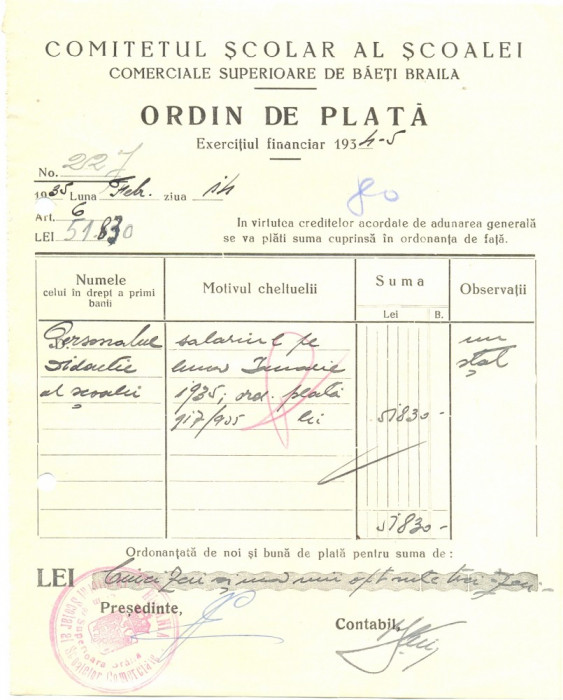 COMITETUL ȘCOLAR AL ȘCOALEI
COMERCIALE SUPERIOARE DE BĂEȚI BRAILA
ORDIN DE PLATĂ
Exercițiul financiar 1934-5
No. 227
1935 Luna Febr. ziua 14
80
Art. 6
LEI 51.830
In virtutea creditelor acordate de adunarea generală
se va plăti suma cuprinsă în ordonanța de față.
Numele
celui în drept a primi
banii
Motivul cheltuelii
Suma
Lei B.
Observații
Personalul salariul pe un
didactic luna Ianuarie stat
al școalii 1935; ord. plată
917/935 lei 51830-
51830-
Ordonanțată de noi și bună de plată pentru suma de :
LEI Cinci zeci și una mii opt sute trei zeci-
Președinte,
Contabil,